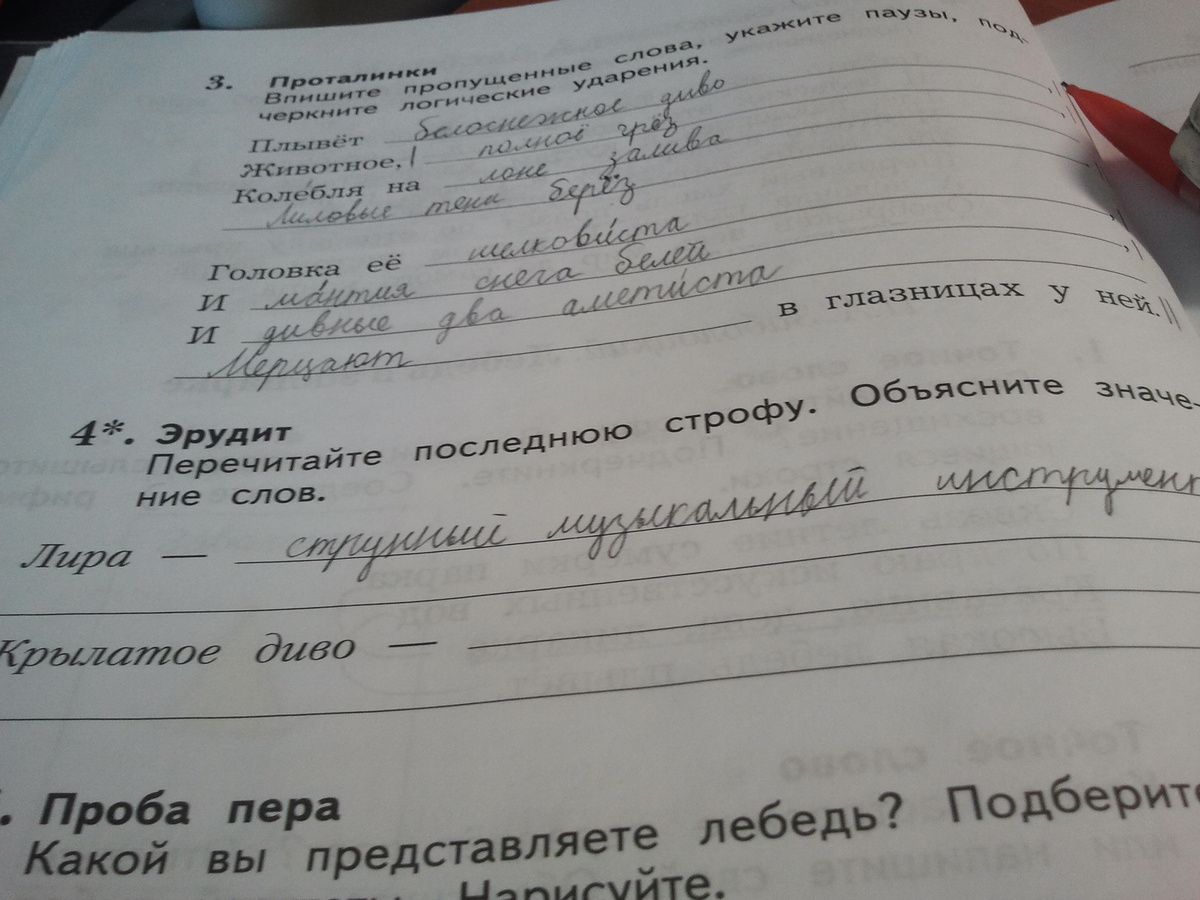 3. Проталинки
Впишите пропущенные слова, укажите паузы, под-
черкните логические ударения.
Плывёт белоснежное диво
Животное, | полное грёз
Колебля на лоне залива
Лиловые тени берёз
Головка её шелковиста
И мантия снега белей
И дивные два аметиста
Мерцают в глазницах у ней.
4*. Эрудит
Перечитайте последнюю строфу. Объясните значе-
ние слов.
Лира — струнный музыкальный инструмент
Крылатое диво —
Проба пера
Какой вы представляете лебедь? Подберите
Нарисуйте.